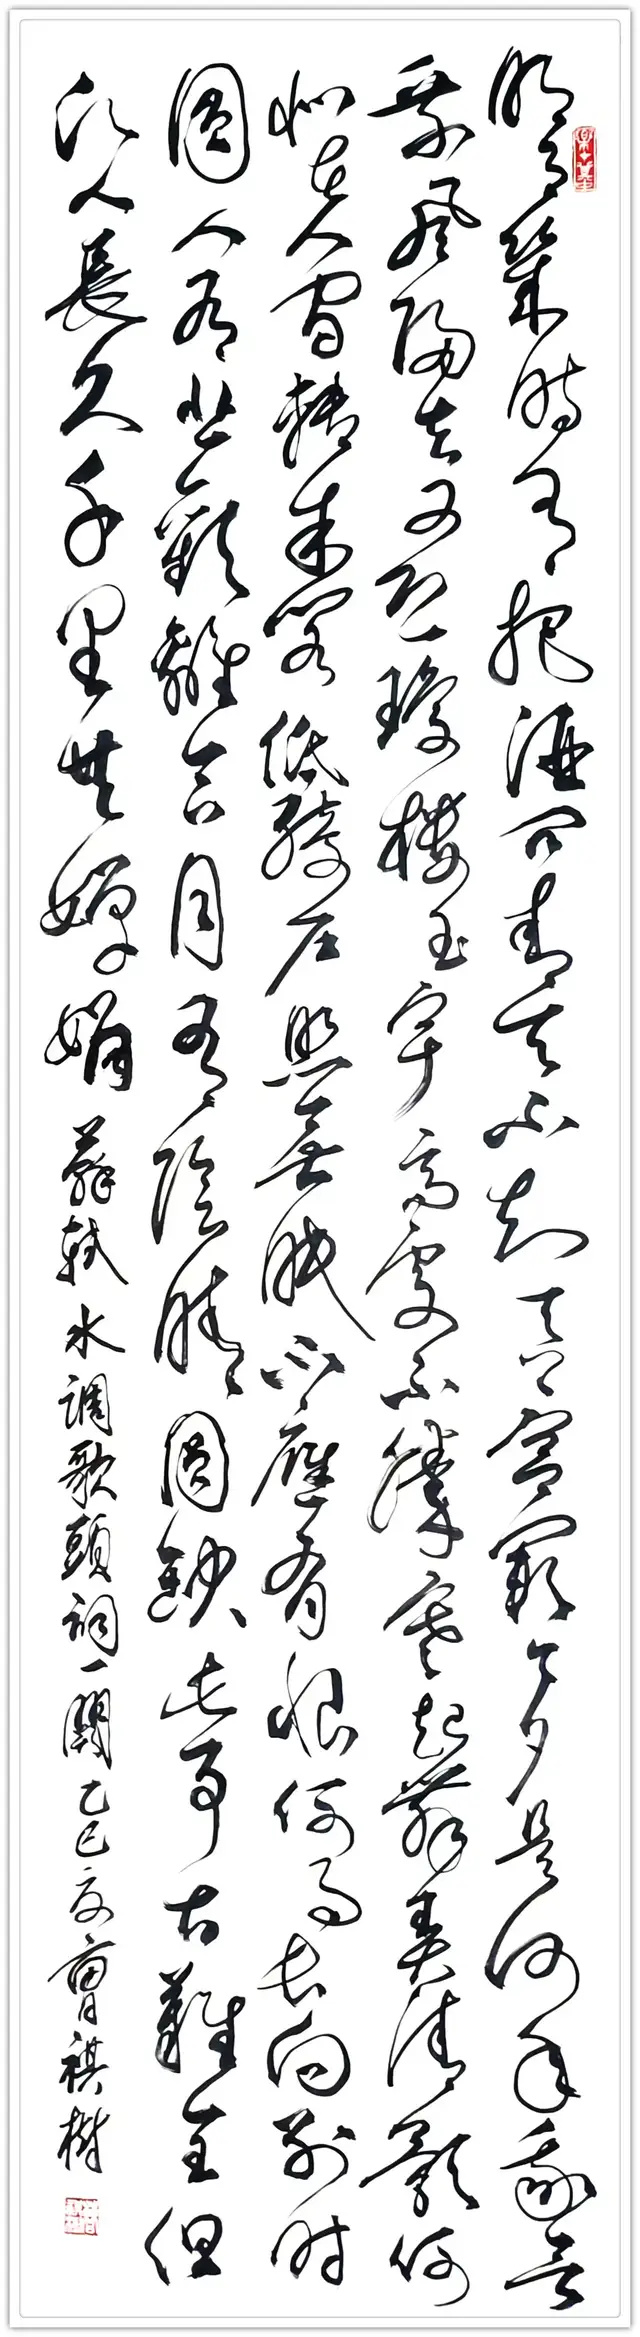 明月幾時有把酒問青天不知天上宮闕今夕是何年我欲
乘風歸去又恐瓊樓玉宇高處不勝寒起舞弄清影何
似在人間轉朱閣低綺戶照無眠不應有恨何事長向別時
圓人有悲歡離合月有陰晴圓缺此事古難全但
願人長久千里共嬋娟 蘇軾水調歌頭詞一闋 乙巳夏 曹祺樹